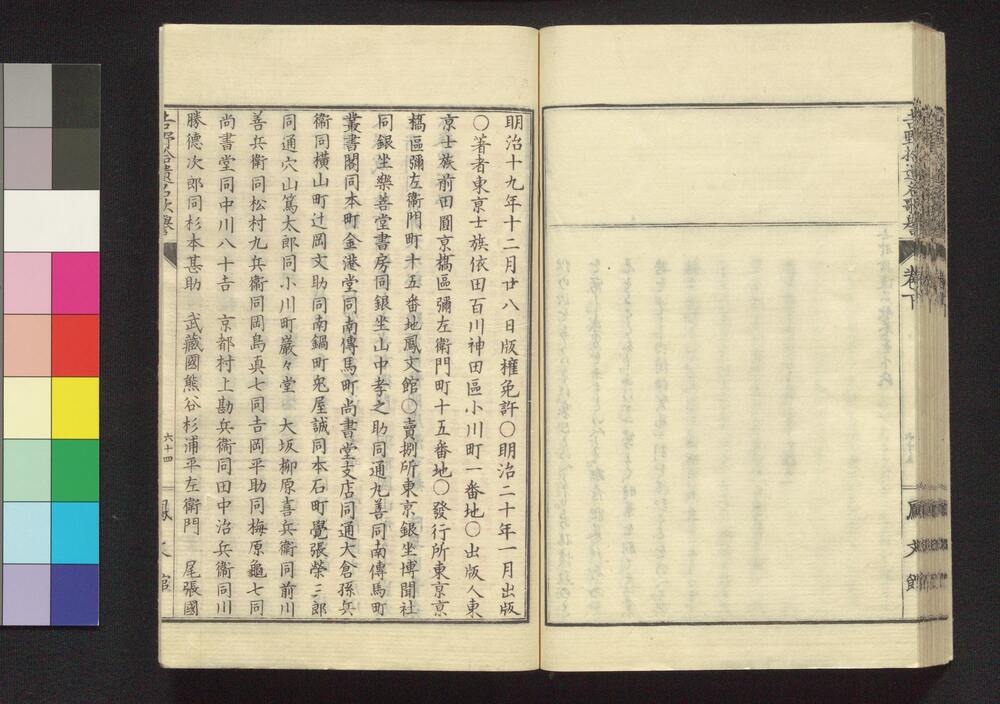 卷下
鳳文館
明治十九年十二月廿八日版權免許〇明治二十年一月出版
〇著者東京士族依田百川神田區小川町一番地〇出版人東
京士族前田圓京橋區彌左衞門町十五番地〇發行所東京京
橋區彌左衞門町十五番地鳳文館〇賣捌所東京銀坐博聞社
同銀坐樂善堂書房同銀坐山中孝之助同通九善同南傳馬町
叢書閣同本町金港堂同南傳馬町尚書堂支店同通大倉孫兵
衞同横山町辻岡文助同南鍋町兎屋誠同本石町覺張榮三郎
同通穴山篤太郎同小川町巖々堂 大坂柳原喜兵衞同前川
善兵衞同松村九兵衞同岡島真七同吉岡平助同梅原龜七同
尚書堂同中川八十吉 京都村上勘兵衞同田中治兵衞同川
勝德次郎同杉本甚助 武藏國熊谷杉浦平左衞門 尾張國
六十四